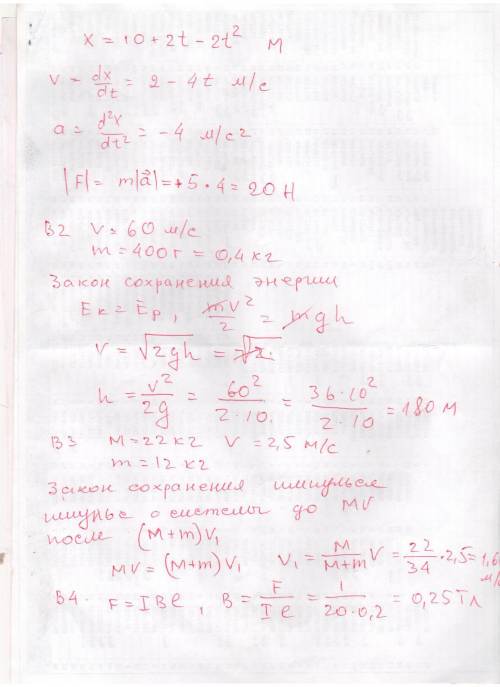 x = 10 + 2t - 2t² м
v = dx/dt = 2 - 4t м/с
a = d²x/dt² = -4 м/с²
|F| = m|a⃗| = 5 · 4 = 20 Н
В2 V = 60 м/с
m = 400 г = 0,4 кг
Закон сохранения энергии
Eк = Eр, mv²/2 = mgh
V = √2gh =
h = v²/2g = 60²/2·10 = 36·10²/2·10 = 180 м
В3 M = 22 кг V = 2,5 м/с
m = 12 кг
Закон сохранения импульса
импульс системы до MV
после (M+m)V₁
MV = (M+m)V₁ V₁ = M/M+m V = 22/34 · 2,5 = 1,6 м/
В4. F = IBl, B = F/Il = 1/20·0,2 = 0,25 Тл